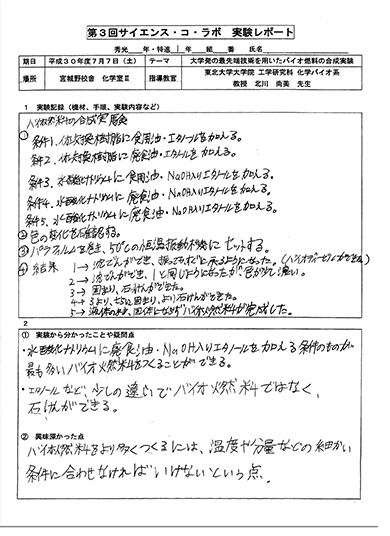 第3回サイエンス・コ・ラボ 実験レポート
秀光 年・特進 1 年 組 番 氏名
期日 平成30年7月7日(土) テーマ 大学発の最先端技術を用いたバイオ燃料の合成実験
場所 宮城野校舎 化学室Ⅱ 指導教官 東北大学大学院 工学研究科 化学バイオ系
教授 北川 尚美 先生
1 実験記録(機材、手順、実験内容など)
バイオ燃料の合成実験
① 条件1. イオン交換樹脂に食用油・エタノールを加える。
条件2. イオン交換樹脂に廃食油・エタノールを加える。
条件3. 水酸化ナトリウムに食用油・NaOH入りエタノールを加える。
条件4. 水酸化ナトリウムに廃食油・NaOH入りエタノールを加える。
条件5. 水酸化ナトリウムに廃食油・NaOH入りエタノールを加える。
② 色の変化を確認する。
③ パラフィルムを巻き、50℃の恒温振動機にセットする。
④ 結果 1→
2→ 1と同じようになったが色が少し濃い。
3→ 固まり、石けんができた。
4→ 3より、さらに固まり、より石けんができた。
5→ 液体のまま、固体にならずバイオ燃料が完成した。
2
① 実験から分かったことや疑問点
・水酸化ナトリウムに廃食油・NaOH入りエタノールを加える条件のものが
最も多いバイオ燃料をつくることができる。
・エタノールなど、少しの違いでバイオ燃料ではなく、
石けんができる。
② 興味深かった点
バイオ燃料をより多くつくるには、温度や分量などの細かい
条件に合わせなければいけないという点。